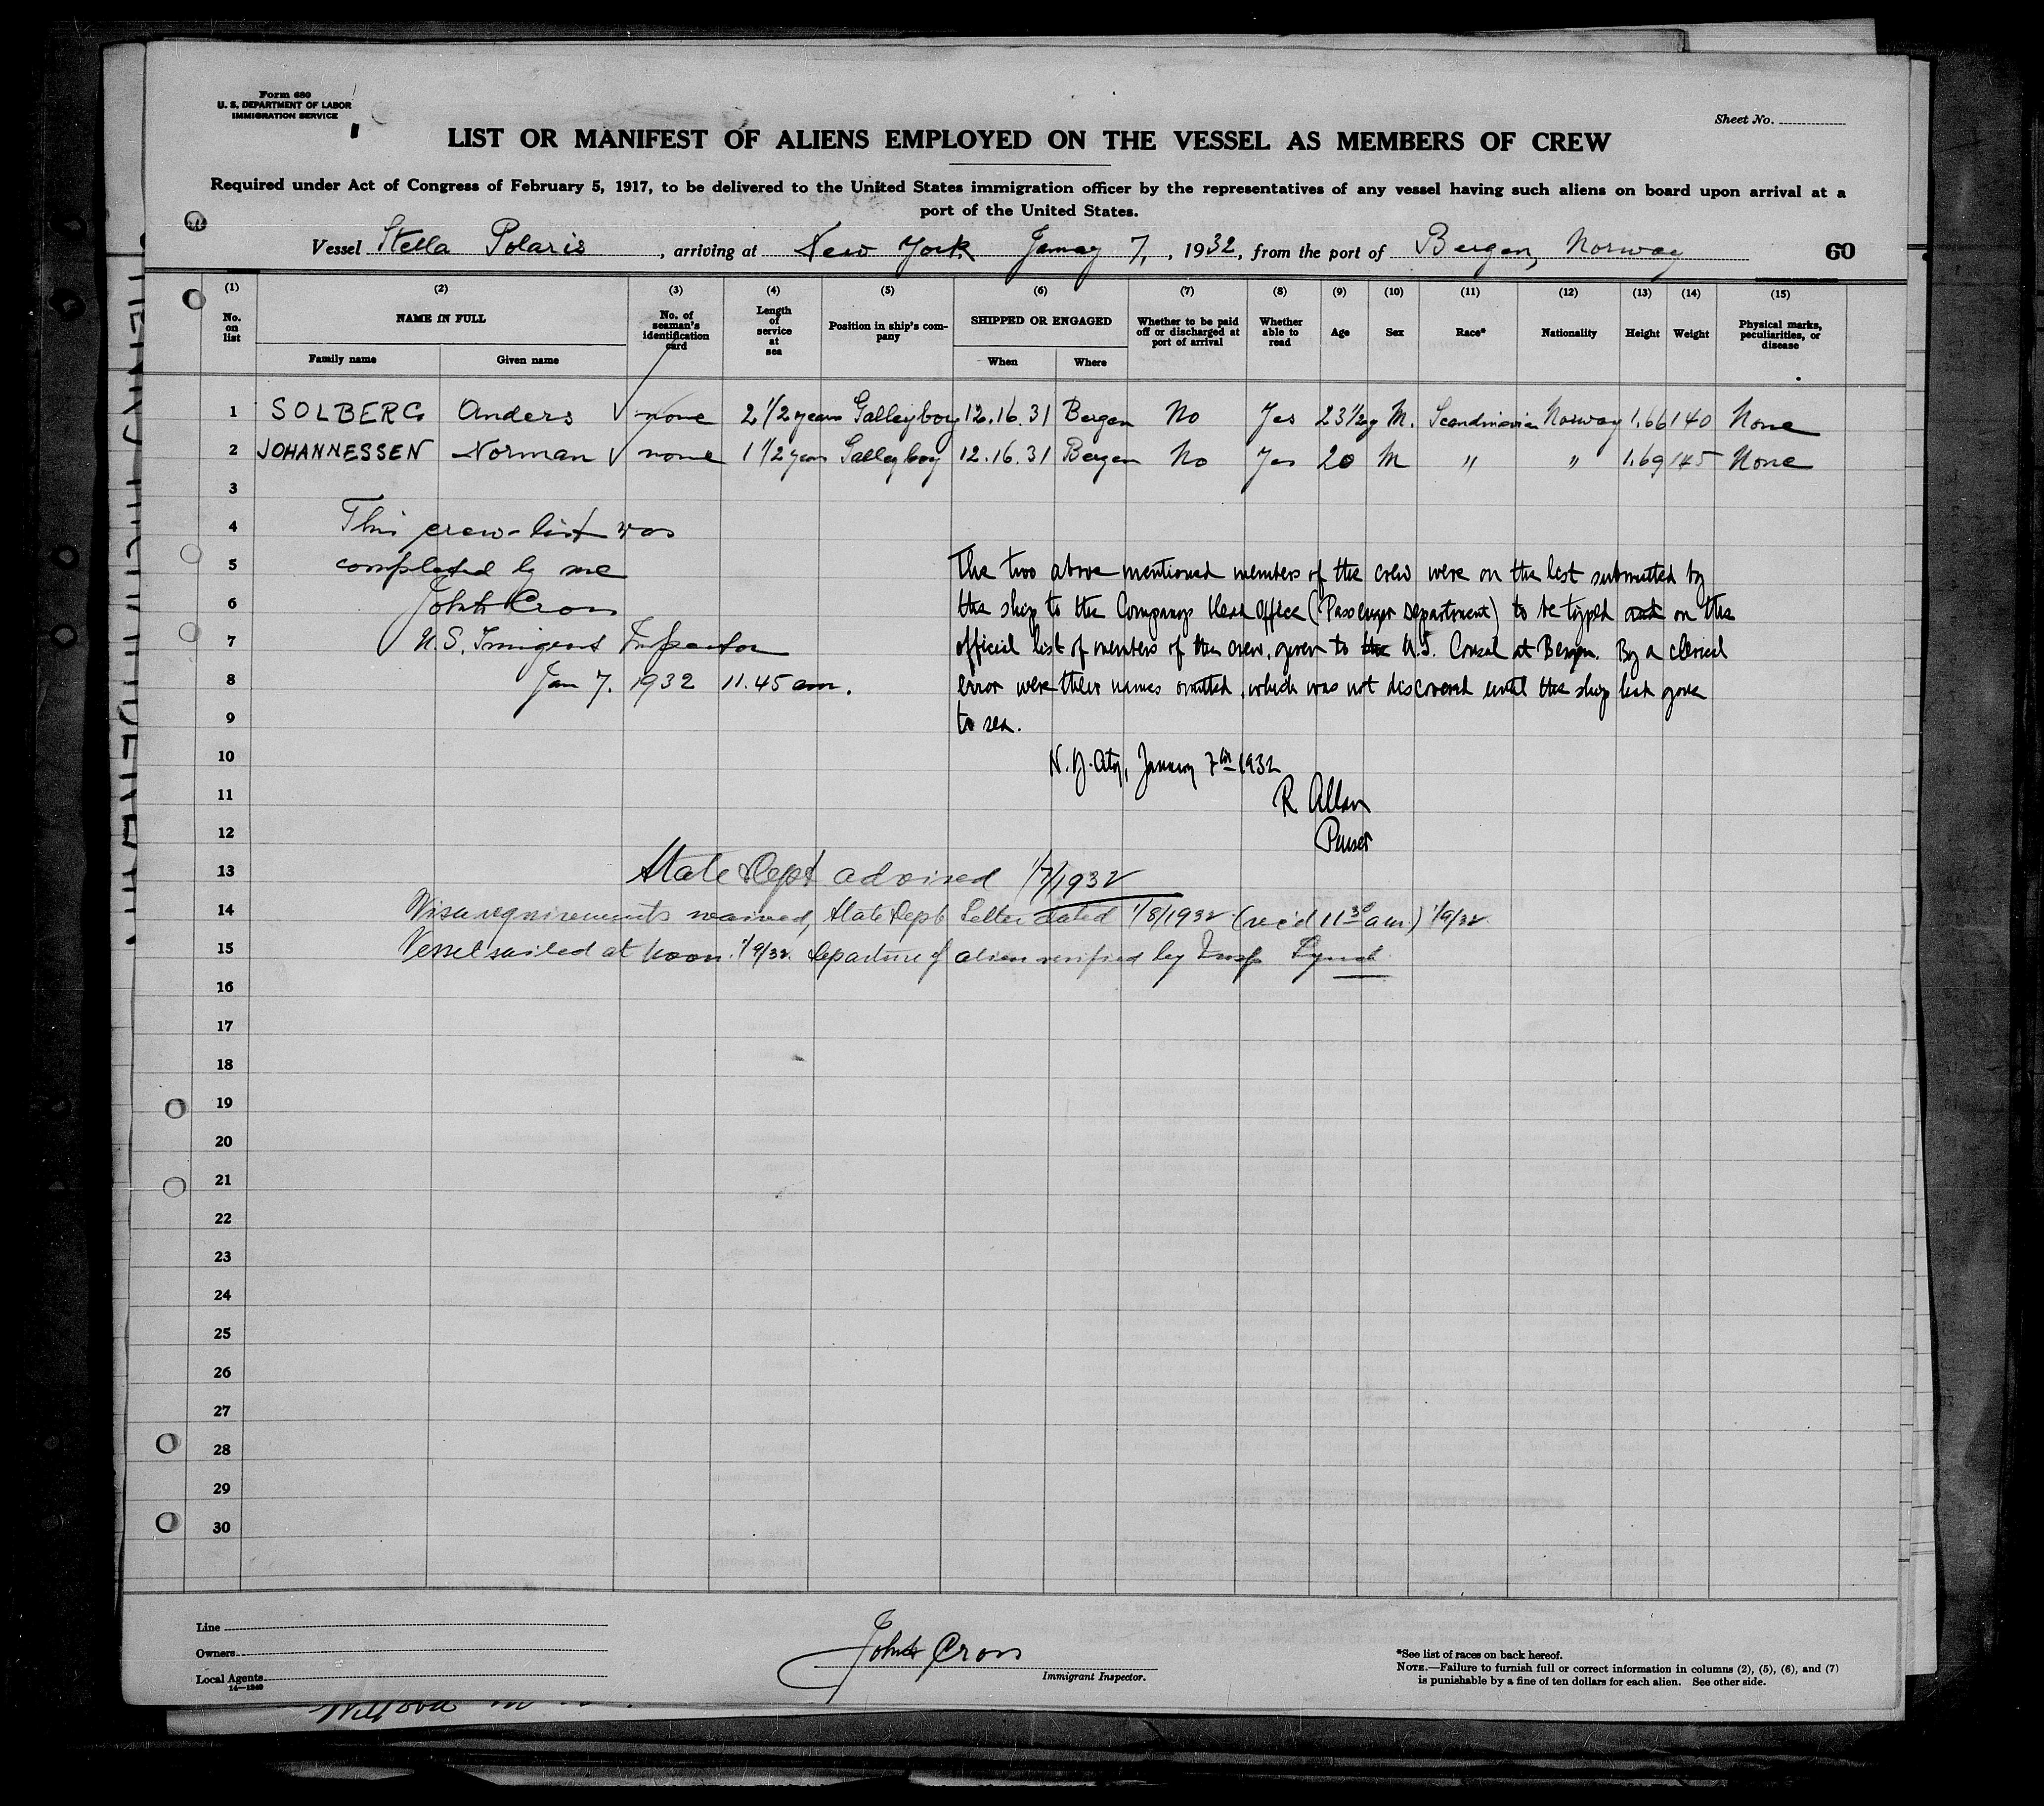 Form 680
U. S. DEPARTMENT OF LABOR
IMMIGRATION SERVICE
Sheet No.
LIST OR MANIFEST OF ALIENS EMPLOYED ON THE VESSEL AS MEMBERS OF CREW
Required under Act of Congress of February 5, 1917, to be delivered to the United States immigration officer by the representatives of any vessel having such aliens on board upon arrival at a
port of the United States.
Vessel Stella Polaris, arriving at New York January 7, , 1932, from the port of Bergen, Norway 60
(1) (2) (3) (4) (5) (6) (7) (8) (9) (10) (11) (12) (13) (14) (15)
No. on list NAME IN FULL Family name Given name No. of seaman's identification card Length of service at sea Position in ship's company SHIPPED OR ENGAGED When Where Whether to be paid off or discharged at port of arrival Whether able to read Age Sex Race* Nationality Height Weight Physical marks, peculiarities, or disease
1 SOLBERG Anders ✓ none 2 1/2 years Galley boy 12.16.31 Bergen No Yes 23 1/2 y M. Scandinavian Norway 1.66 140 None
2 JOHANNESSEN Norman ✓ none 1 1/2 year Galley boy 12.16.31 Bergen No Yes 20 M " " 1.69 145 None
3
4 This crew-list was
5 completed by me
The two above mentioned members of the crew were on the list submitted by
6 John Cron
the ship to the Companys Head Office (Passenger Department) to be typed on the
7 U.S. Immigrant Inspector
official list of members of the crew, given to the U.S. Consul at Bergen. By a clerical
8 Jan 7. 1932 11.45 am.
error were their names omitted, which was not discovered until the ship had gone
9 to sea.
10 N.Y. City, January 7th 1932
11 R Allan
12 Purser
13 State Dept advised 1/7/1932
14 Visa requirements waived, State Dept Letter dated 1/8/1932 (rec'd 11 30 a.m.) 1/9/32.
15 Vessel sailed at noon. 1/9/32. Departure of alien verified by Insp Lynch
16
17
18
19
20
21
22
23
24
25
26
27
28
29
30
Line
Owners
Local Agents
14—1240
John Cron
Immigrant Inspector.
*See list of races on back hereof.
NOTE.—Failure to furnish full or correct information in columns (2), (5), (6), and (7)
is punishable by a fine of ten dollars for each alien. See other side.